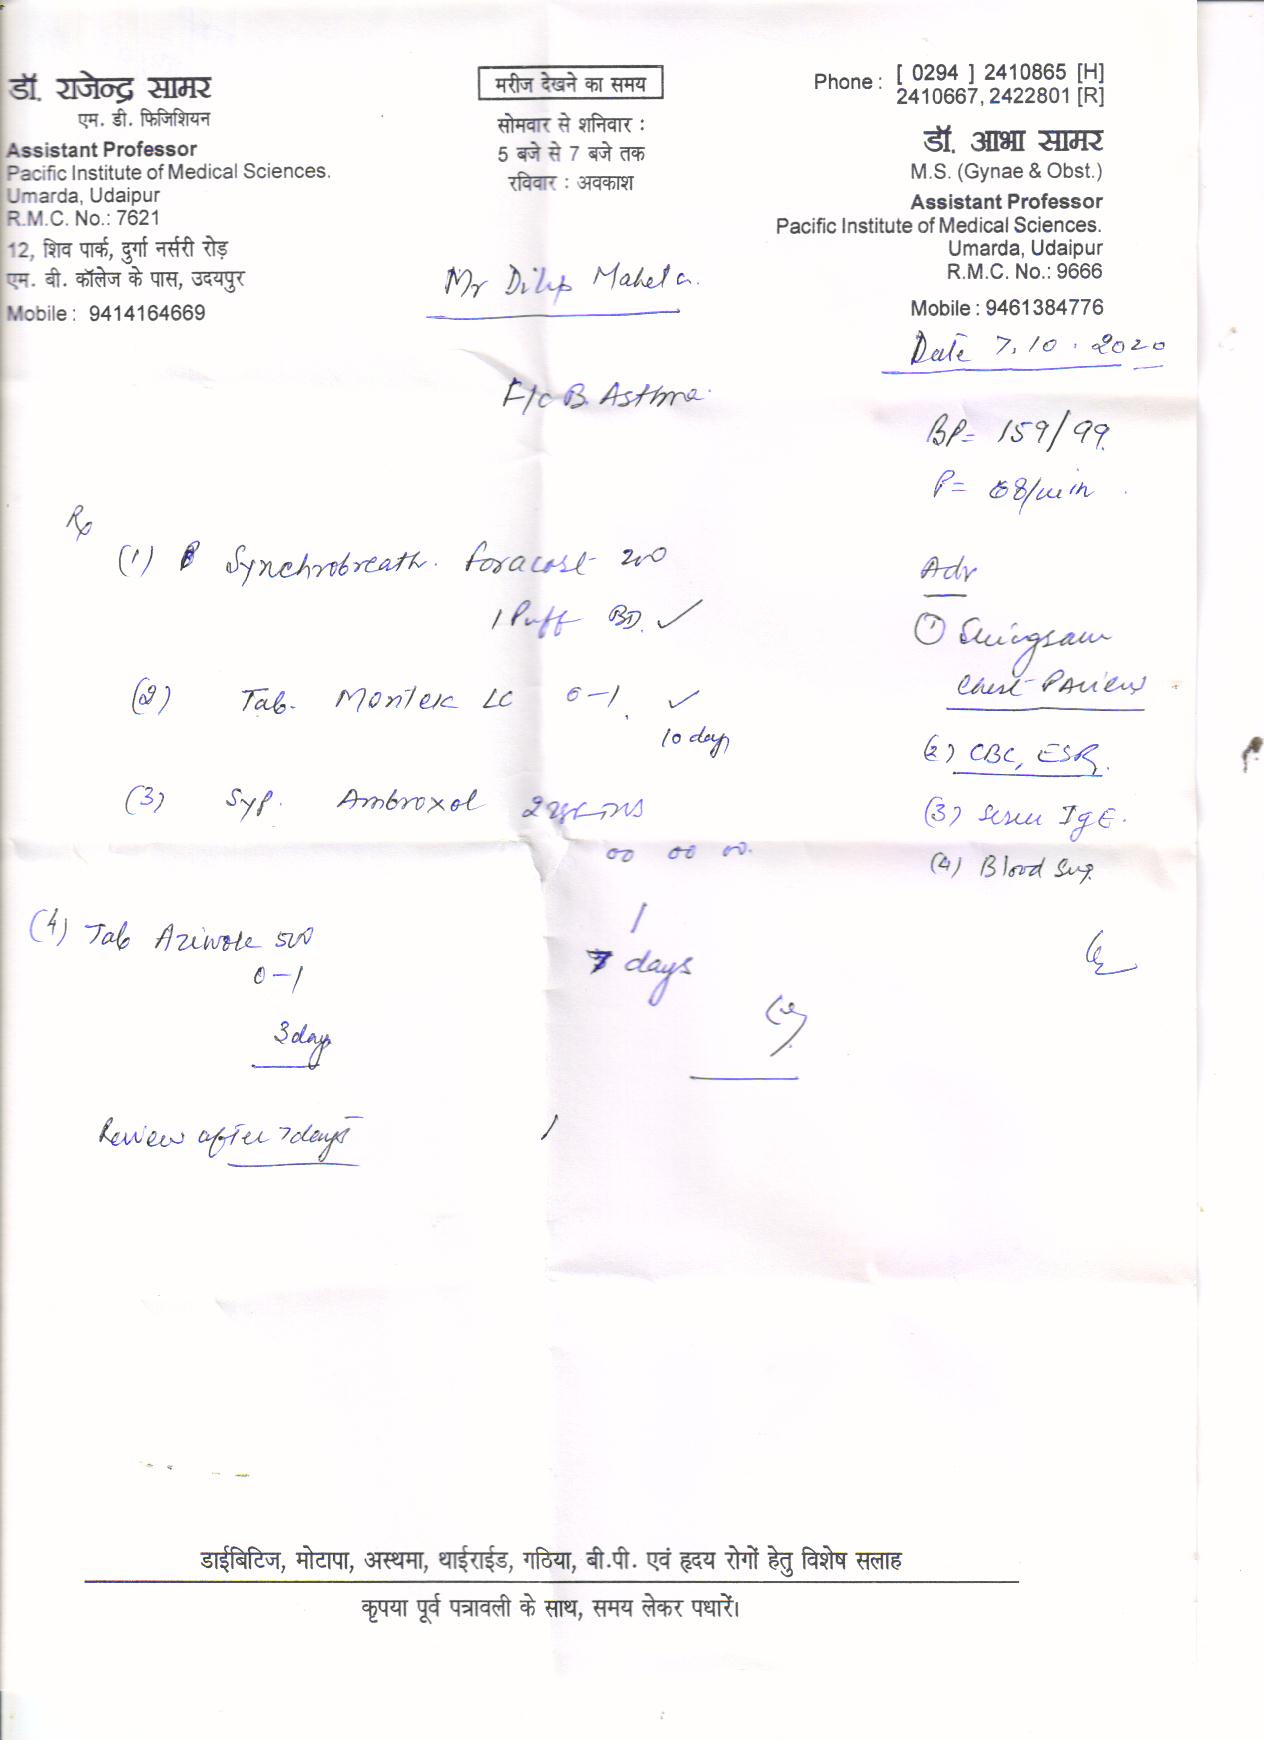 डॉ. राजेन्द्र सामर
एम. डी. फिजिशियन
Assistant Professor
Pacific Institute of Medical Sciences.
Umarda, Udaipur
R.M.C. No.: 7621
12, शिव पार्क, दुर्गा नर्सरी रोड़
एम. बी. कॉलेज के पास, उदयपुर
Mobile : 9414164669
मरीज देखने का समय
सोमवार से शनिवार :
5 बजे से 7 बजे तक
रविवार : अवकाश
Phone : [ 0294 ] 2410865 [H]
2410667, 2422801 [R]
डॉ. आभा सामर
M.S. (Gynae & Obst.)
Assistant Professor
Pacific Institute of Medical Sciences.
Umarda, Udaipur
R.M.C. No.: 9666
Mobile : 9461384776
Mr Dilip
Date 7.10.2020
B. Asthma.
BP= 159/99
P= /min
Rx
(1) Synchrobreath. foracost 200
1 Puff BD. ✓
(2) Tab. Montek LC 0-1 ✓
10 day
(3) Syp. Ambroxol
7 days
(4) Tab 500
0-1
3 day
Review after 7 days
Adv
①
Chest PA view
(2) CBC, ESR.
(3) IgE.
(4) Blood Sug.
डाईबिटिज, मोटापा, अस्थमा, थाईराईड, गठिया, बी.पी. एवं हृदय रोगों हेतु विशेष सलाह
कृपया पूर्व पत्रावली के साथ, समय लेकर पधारें।